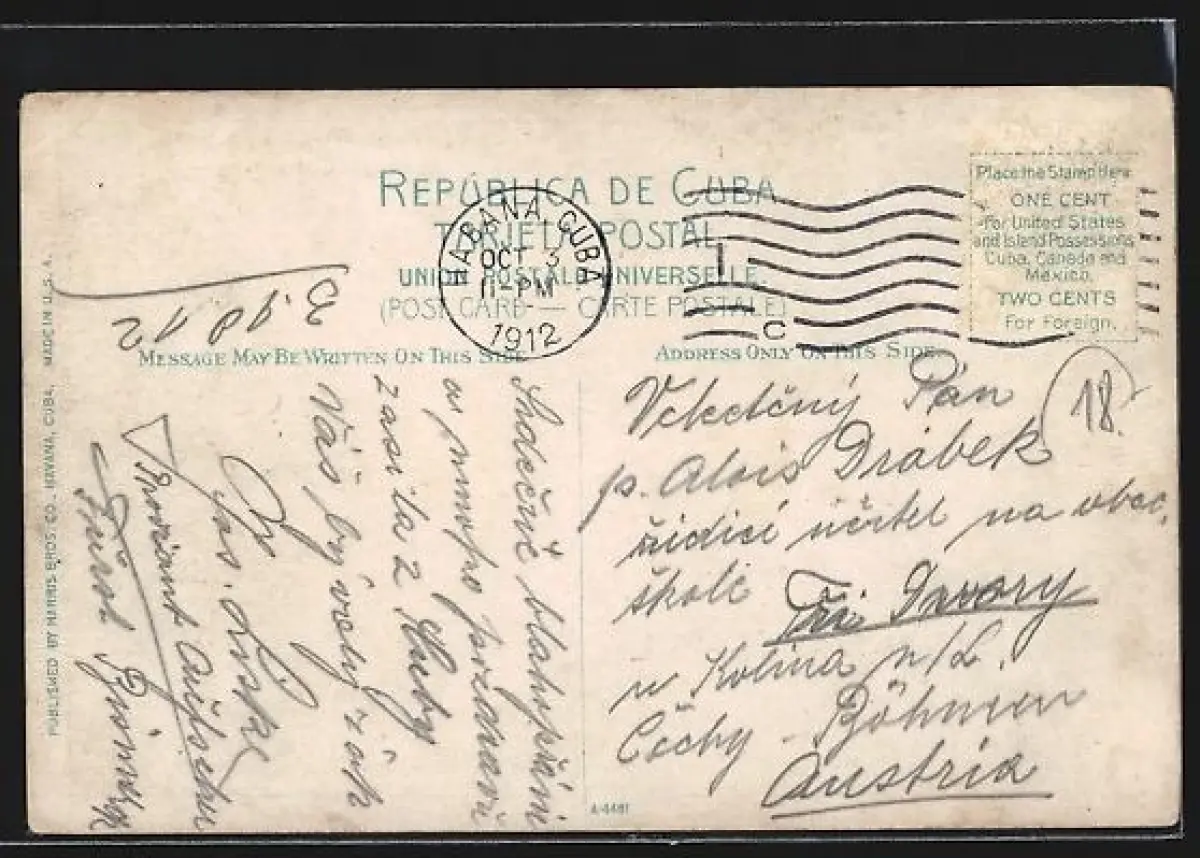 REPÚBLICA DE CUBA
TARJETA POSTAL
UNION POSTALE UNIVERSELLE
(POST CARD — CARTE POSTALE)
MESSAGE MAY BE WRITTEN ON THIS SIDE
ADDRESS ONLY ON THIS SIDE
HABANA, CUBA
OCT 3
11-PM
1912
C
Place the Stamp Here
ONE CENT
For United States
and Island Possessions
Cuba, Canada and
Mexico.
TWO CENTS
For Foreign.
18.
Velectěný Pán
p. Alois Drábek
řídící učitel na obec.
škole
Tři Dvory
u Kolína n/L.
Čechy - Böhmen
Austria
3.10.12
Srdečné blahopřání
zasílá z
Váš bývalý žák
Jos.
Proviant
Fürst
PUBLISHED BY HARRIS BROS. CO. HAVANA, CUBA. MADE IN U. S. A.
A-4481